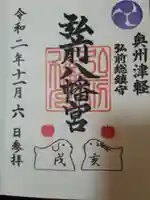 奥州津軽
弘前総鎮守
弘前八幡宮
令和二年十一月六日参拝
亥
戌